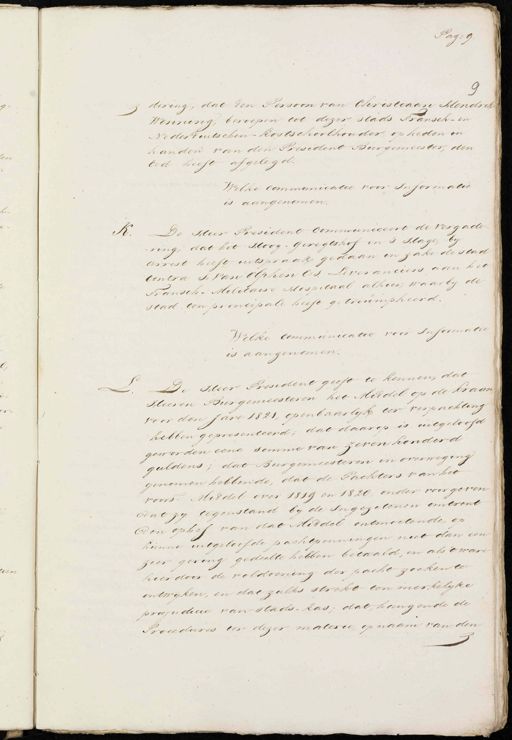 Pag. 9
9
dering, dat een Persoon van Christiaan Hendrik
Wenning, beroepen tot dezer stads Fransch- en
Nederduitschen Kostschoolhouder, op heden in
handen van den President Burgemeester, den
Eed heeft afgelegd.
Welke communicatie voor Informatie
is aangenomen.
K. De Heer President Communiceert de Vergade-
ring, dat het Hoog-Geregtshof in 's Hage, by
arrest heeft uitspraak gedaan in zake de stad
contra van Cs. Leveranciers aan het
Fransch Militaire Hospitaal alhier, waarby de
stad ten principale heeft getriumpheerd.
Welke communicatie voor Informatie
is aangenomen.
L. De Heer President geeft te kennen, dat
Heeren Burgemeesteren het Middel op de Kraan
voor den Jare 1821. openbaarlyk ter verpachting
hebben gepresenteerd; dat daarop is uitgeloofd
geworden eene somme van zeven honderd
guldens; dat Burgemeesteren in overweging
genomen hebbende, dat de Pachters van het
voors. Middel over 1819 en 1820. onder voorgeven
dat zy tegenstand by de Ingezetenen omtrent
den ophef van dat Middel ontmoetende, op
hunne uitgeloofde pachtpenningen niet dan een
zeer gering gedeelte hebben betaald, en als ware
hierdoor de voldoening der pacht zoeken te
ontwyken, en dat zulks strekt ten merkelyke
prejudicie van stads-kas; dat hangende de
Procedures ter dezer materie, op naam van den